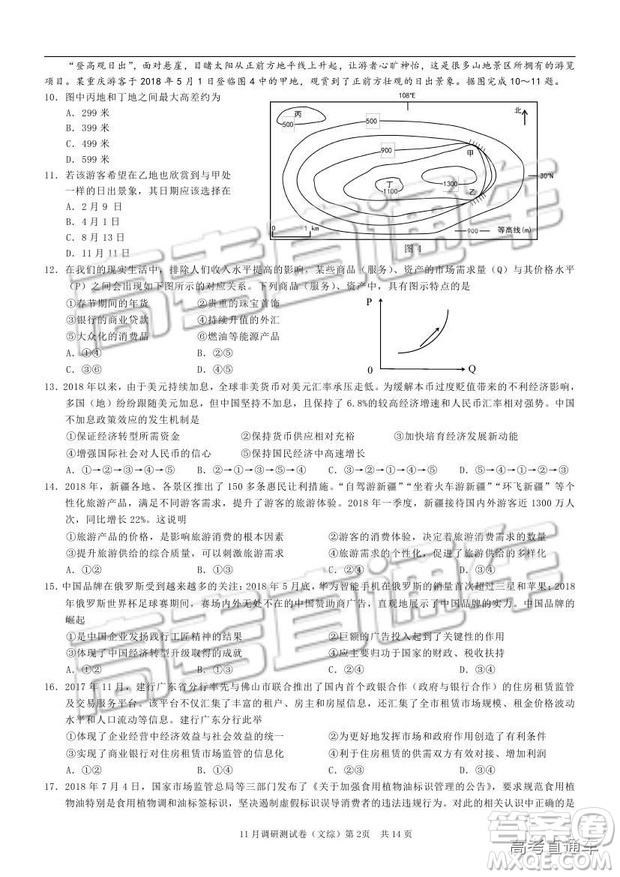 “登高观日出”，面对悬崖，目睹太阳从正前方地平线上升起，让游者心旷神怡，这是很多山地景区所拥有的游览
项目。某重庆游客于 2018 年 5 月 1 日登临图 4 中的甲地，观赏到了正前方壮观的日出景象。据图完成 10～11 题。
10. 图中丙地和丁地之间最大高差约为
A. 299 米
B. 399 米
C. 499 米
D. 599 米
11. 若该游客希望在乙地也欣赏到与甲处
一样的日出景象，其日期应该选择在
A. 2 月 9 日
B. 3 月 11 日
C. 8 月 13 日
D. 11 月 11 日
108°E
丙
500
500
北
900
甲
30°N
丁
1100
1300
乙
0 1 km
900 等高线(m)
图 4
12. 在我们的现实生活中，排除人们收入水平提高的影响，某些商品（服务）、资产的市场需求量（Q）与其价格水平
（P）之间会出现如下图所示的对应关系。下列商品（服务）、资产中，具有图示特点的是
①春节期间的年货 ②贵重的珠宝首饰
③银行的商业贷款 ④持续升值的外汇
⑤大众化的消费品 ⑥燃油等能源产品
A. ①③ B. ②⑤
C. ③⑥ D. ②④
P
0
Q
13. 2018 年以来，由于美元持续加息，全球非美货币对美元汇率承压走低。为缓解本币过度贬值带来的不利经济影响，
多国（地）纷纷跟随美元加息，但中国坚持不加息，且保持了 6.8%的较高经济增速和人民币汇率的基本稳定。中国
不加息政策效应的发生机制是
①保证经济转型所需资金 ②保持货币供应相对充裕 ③加快培育经济发展新动能
④增强国际社会对人民币的信心 ⑤保持国民经济中高速增长
A. ①→②→③→④→⑤ B. ②→①→③→⑤→④ C. ①→②→③→⑤→④ D. ②→①→③→④→⑤
14. 2018 年，新疆各地、各景区推出了 150 多条惠民让利措施。“自驾游新疆”“坐着火车游新疆”“环飞新疆”等个
性化旅游产品，满足了不同游客需求，提升了游客的旅游体验。2018 年一季度，新疆接待国内外游客近 1300 万人
次，同比增长 22%。这说明
①旅游产品的价格，是影响旅游消费的根本因素 ②游客的消费体验，成为旅游经济发展的动力
③提升旅游供给的质量，可以刺激旅游需求 ④旅游需求的变动，引导旅游产品的供给
A. ①② B. ①③ C. ②④ D. ③④
15. 中国品牌在俄罗斯受到越来越多的关注：2018 年 5 月底，华为智能手机在俄罗斯的销量首次超过三星和苹果；2018
年俄罗斯世界杯足球赛期间，赛场内外无处不在的中国赞助商广告，直观地展示了中国企业的实力。中国品牌的
崛起
①是中国企业发扬践行工匠精神的结果 ②巨额的广告支出起到了关键性的作用
③体现了中国经济转型升级的成效 ④应主要归功于中国政府的政策扶持
A. ①② B. ①③ C. ②④ D. ③④
16. 2017 年 11 月，建行广东省分行率先与佛山市联合推出了国内首个政银合作（政府与银行合作）的住房租赁监管
及交易服务平台。该平台不仅汇集了丰富的租户、房主和房屋信息，还提供了全市租赁市场规模、房租价格波动
水平和人口流动等信息。建行广东分行此举
①体现了企业经营中经济效益与社会效益的统一 ②说明市场在资源配置中的作用存在局限性
③能防范金融市场的系统性风险 ④能为住房租赁的供需双方有效对接创造有利条件
A. ①③ B. ①④ C. ②③ D. ②④
17. 2018 年 7 月 4 日，国家市场监管总局等三部门发布了《关于加强食用植物油标识管理的公告》，依法规范食用植
物油特别是食用植物调和油标签标识，坚决遏制虚假标识误导消费者的违法违规行为。规范食用植物油标签标识
11 月调研测试卷（文综）第 2页 共 14 页
高考直通车
高考直通车
答案圈
MXQE.COM